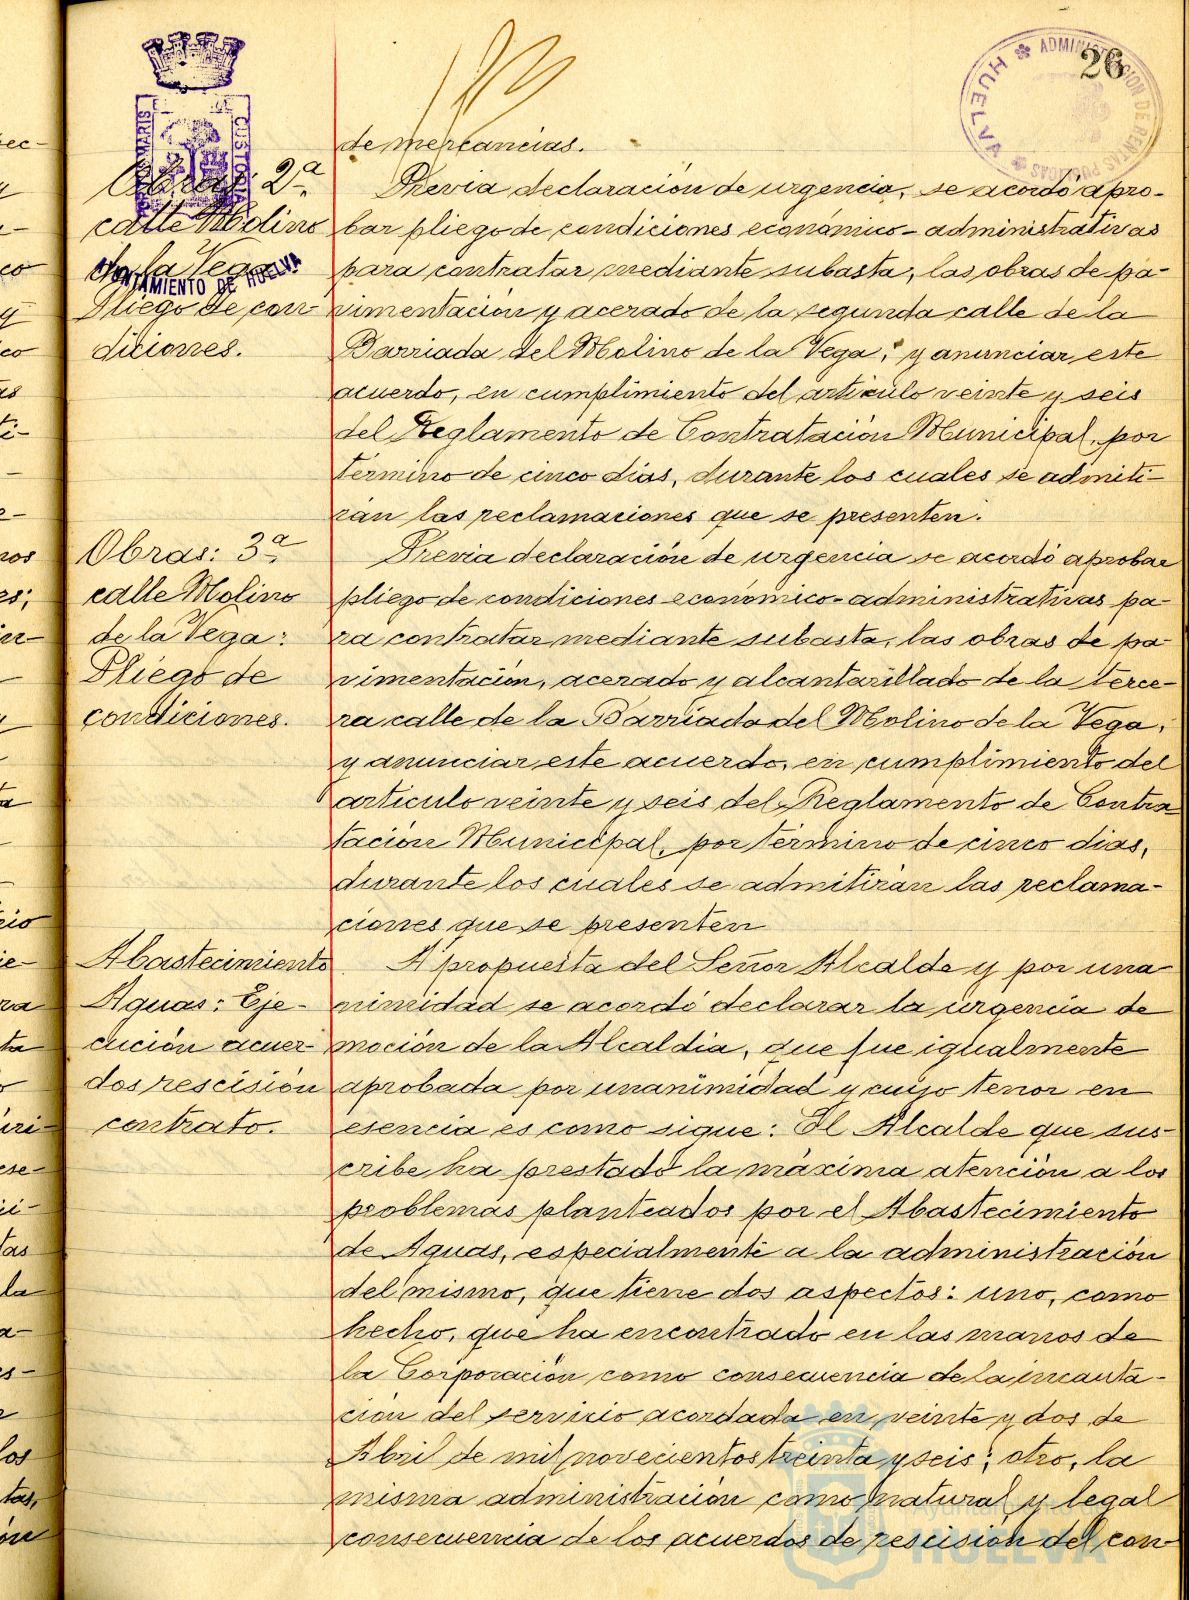 26
ADMINISTRACION DE RENTAS PUBLICAS
HUELVA
AYUNTAMIENTO DE HUELVA
de mercancias.
Obras: 2ª
calle Molino
de la Vega:
Pliego de con-
diciones.
Previa declaración de urgencia, se acordó apro-
bar pliego de condiciones económico-administrativas
para contratar mediante subasta, las obras de pa-
vimentación y acerado de la segunda calle de la
Barriada del Molino de la Vega; y anunciar este
acuerdo, en cumplimiento del artículo veinte y seis
del Reglamento de Contratación Municipal, por
término de cinco dias, durante los cuales se admiti-
rán las reclamaciones que se presenten.
Obras: 3ª
calle Molino
de la Vega:
Pliego de
condiciones.
Previa declaración de urgencia se acordó aprobar
pliego de condiciones económico-administrativas pa-
ra contratar mediante subasta, las obras de pa-
vimentación, acerado y alcantarillado de la terce-
ra calle de la Barriada del Molino de la Vega,
y anunciar este acuerdo, en cumplimiento del
artículo veinte y seis del Reglamento de Contra-
tación Municipal, por término de cinco dias,
durante los cuales se admitirán las reclama-
ciones que se presenten
Abastecimiento
Aguas: Eje-
cución acuer-
dos rescisión
contrato.
A propuesta del Señor Alcalde y por una-
nimidad se acordó declarar la urgencia de
moción de la Alcaldia, que fue igualmente
aprobada por unanimidad y cuyo tenor en
esencia es como sigue: El Alcalde que sus-
cribe ha prestado la máxima atención a los
problemas planteados por el Abastecimiento
de Aguas, especialmente a la administración
del mismo, que tiene dos aspectos: uno, como
hecho, que ha encontrado en las manos de
la Corporación como consecuencia de la incauta-
ción del servicio acordada en veinte y dos de
Abril de mil novecientos treinta y seis; otro, la
misma administración como natural y legal
consecuencia de los acuerdos de rescisión del con-
Ayuntamiento de
HUELVA